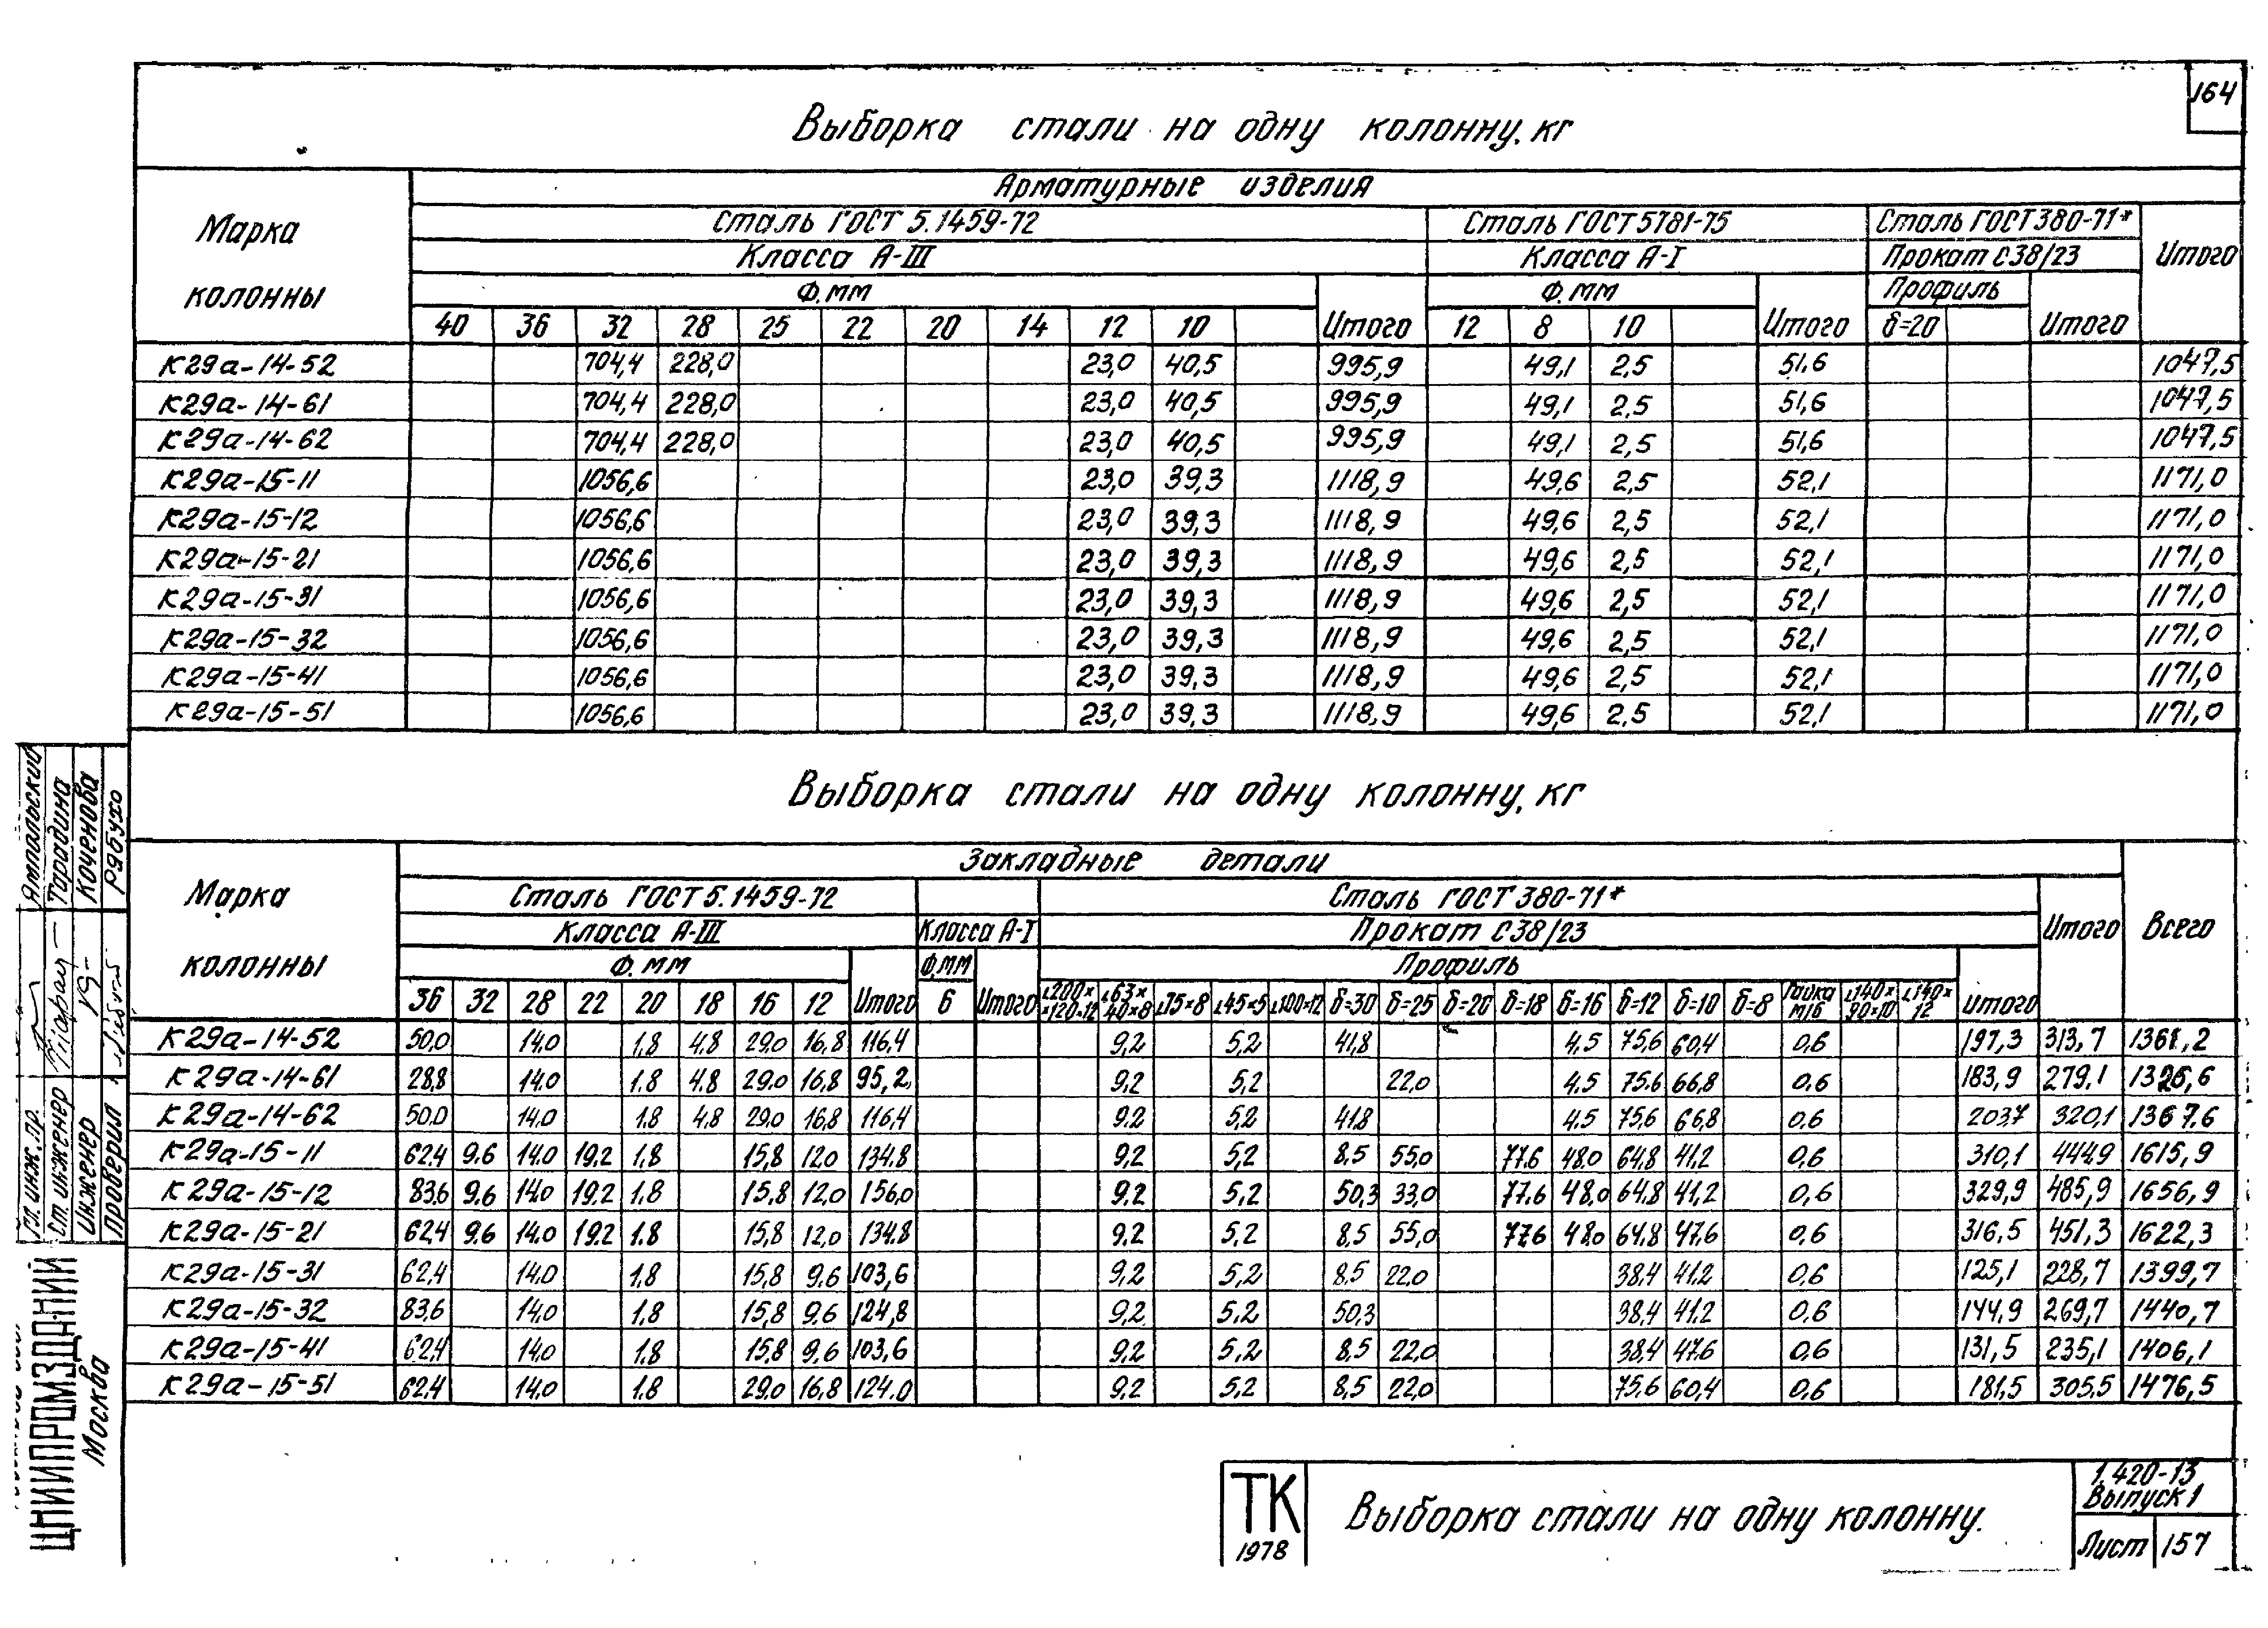 164
Выборка стали на одну колонну, кг
Марка колонны
Арматурные изделия
Сталь ГОСТ 5.1459-72 Сталь ГОСТ 5781-75 Сталь ГОСТ 380-71* Итого
Класса А-III Класса А-I Прокат С38/23
Ф, мм Итого Ф, мм Итого Профиль Итого
40 36 32 28 25 22 20 14 12 10 12 8 10 δ=20
К29а-14-52 704,4 228,0 23,0 40,5 995,9 49,1 2,5 51,6 1047,5
К29а-14-61 704,4 228,0 23,0 40,5 995,9 49,1 2,5 51,6 1047,5
К29а-14-62 704,4 228,0 23,0 40,5 995,9 49,1 2,5 51,6 1047,5
К29а-15-11 1056,6 23,0 39,3 1118,9 49,6 2,5 52,1 1171,0
К29а-15-12 1056,6 23,0 39,3 1118,9 49,6 2,5 52,1 1171,0
К29а-15-21 1056,6 23,0 39,3 1118,9 49,6 2,5 52,1 1171,0
К29а-15-31 1056,6 23,0 39,3 1118,9 49,6 2,5 52,1 1171,0
К29а-15-32 1056,6 23,0 39,3 1118,9 49,6 2,5 52,1 1171,0
К29а-15-41 1056,6 23,0 39,3 1118,9 49,6 2,5 52,1 1171,0
К29а-15-51 1056,6 23,0 39,3 1118,9 49,6 2,5 52,1 1171,0
Выборка стали на одну колонну, кг
Марка колонны
Закладные детали Всего
Сталь ГОСТ 5.1459-72 Сталь ГОСТ 380-71* Итого
Класса А-III Класса А-I Прокат С38/23
Ф, мм Ф, мм Профиль
36 32 28 22 20 18 16 12 Итого 6 Итого ∟200××120×12 ∟63×40×8 ∟75×8 ∟45×5 ∟100×12 δ=30 δ=25 δ=20 δ=18 δ=16 δ=12 δ=10 δ=8 Гайка М16 ∟140×90×10 ∟140×12 Итого
К29а-14-52 50,0 14,0 1,8 4,8 29,0 16,8 116,4 9,2 5,2 41,8 4,5 75,6 60,4 0,6 197,3 313,7 1361,2
К29а-14-61 28,8 14,0 1,8 4,8 29,0 16,8 95,2 9,2 5,2 22,0 4,5 75,6 66,8 0,6 183,9 279,1 1326,6
К29а-14-62 50,0 14,0 1,8 4,8 29,0 16,8 116,4 9,2 5,2 41,8 4,5 75,6 66,8 0,6 203,7 320,1 1367,6
К29а-15-11 62,4 9,6 14,0 19,2 1,8 15,8 12,0 134,8 9,2 5,2 8,5 55,0 77,6 48,0 64,8 41,2 0,6 310,1 444,9 1615,9
К29а-15-12 83,6 9,6 14,0 19,2 1,8 15,8 12,0 156,0 9,2 5,2 50,3 33,0 77,6 48,0 64,8 41,2 0,6 329,9 485,9 1656,9
К29а-15-21 62,4 9,6 14,0 19,2 1,8 15,8 12,0 134,8 9,2 5,2 8,5 55,0 77,6 48,0 64,8 47,6 0,6 316,5 451,3 1622,3
К29а-15-31 62,4 14,0 1,8 15,8 9,6 103,6 9,2 5,2 8,5 22,0 38,4 41,2 0,6 125,1 228,7 1399,7
К29а-15-32 83,6 14,0 1,8 15,8 9,6 124,8 9,2 5,2 50,3 38,4 41,2 0,6 144,9 269,7 1440,7
К29а-15-41 62,4 14,0 1,8 15,8 9,6 103,6 9,2 5,2 8,5 22,0 38,4 47,6 0,6 131,5 235,1 1406,1
К29а-15-51 62,4 14,0 1,8 29,0 16,8 124,0 9,2 5,2 8,5 22,0 75,6 60,4 0,6 181,5 305,5 1476,5
Гл. инж. пр. Ямпольский
Ст. инженер Тарадина
Инженер Коченова
Проверил Рябухо
ЦНИИПРОМЗДАНИЙ
Москва
ТК
1978
Выборка стали на одну колонну.
1.420-13
Выпуск 1
Лист 157